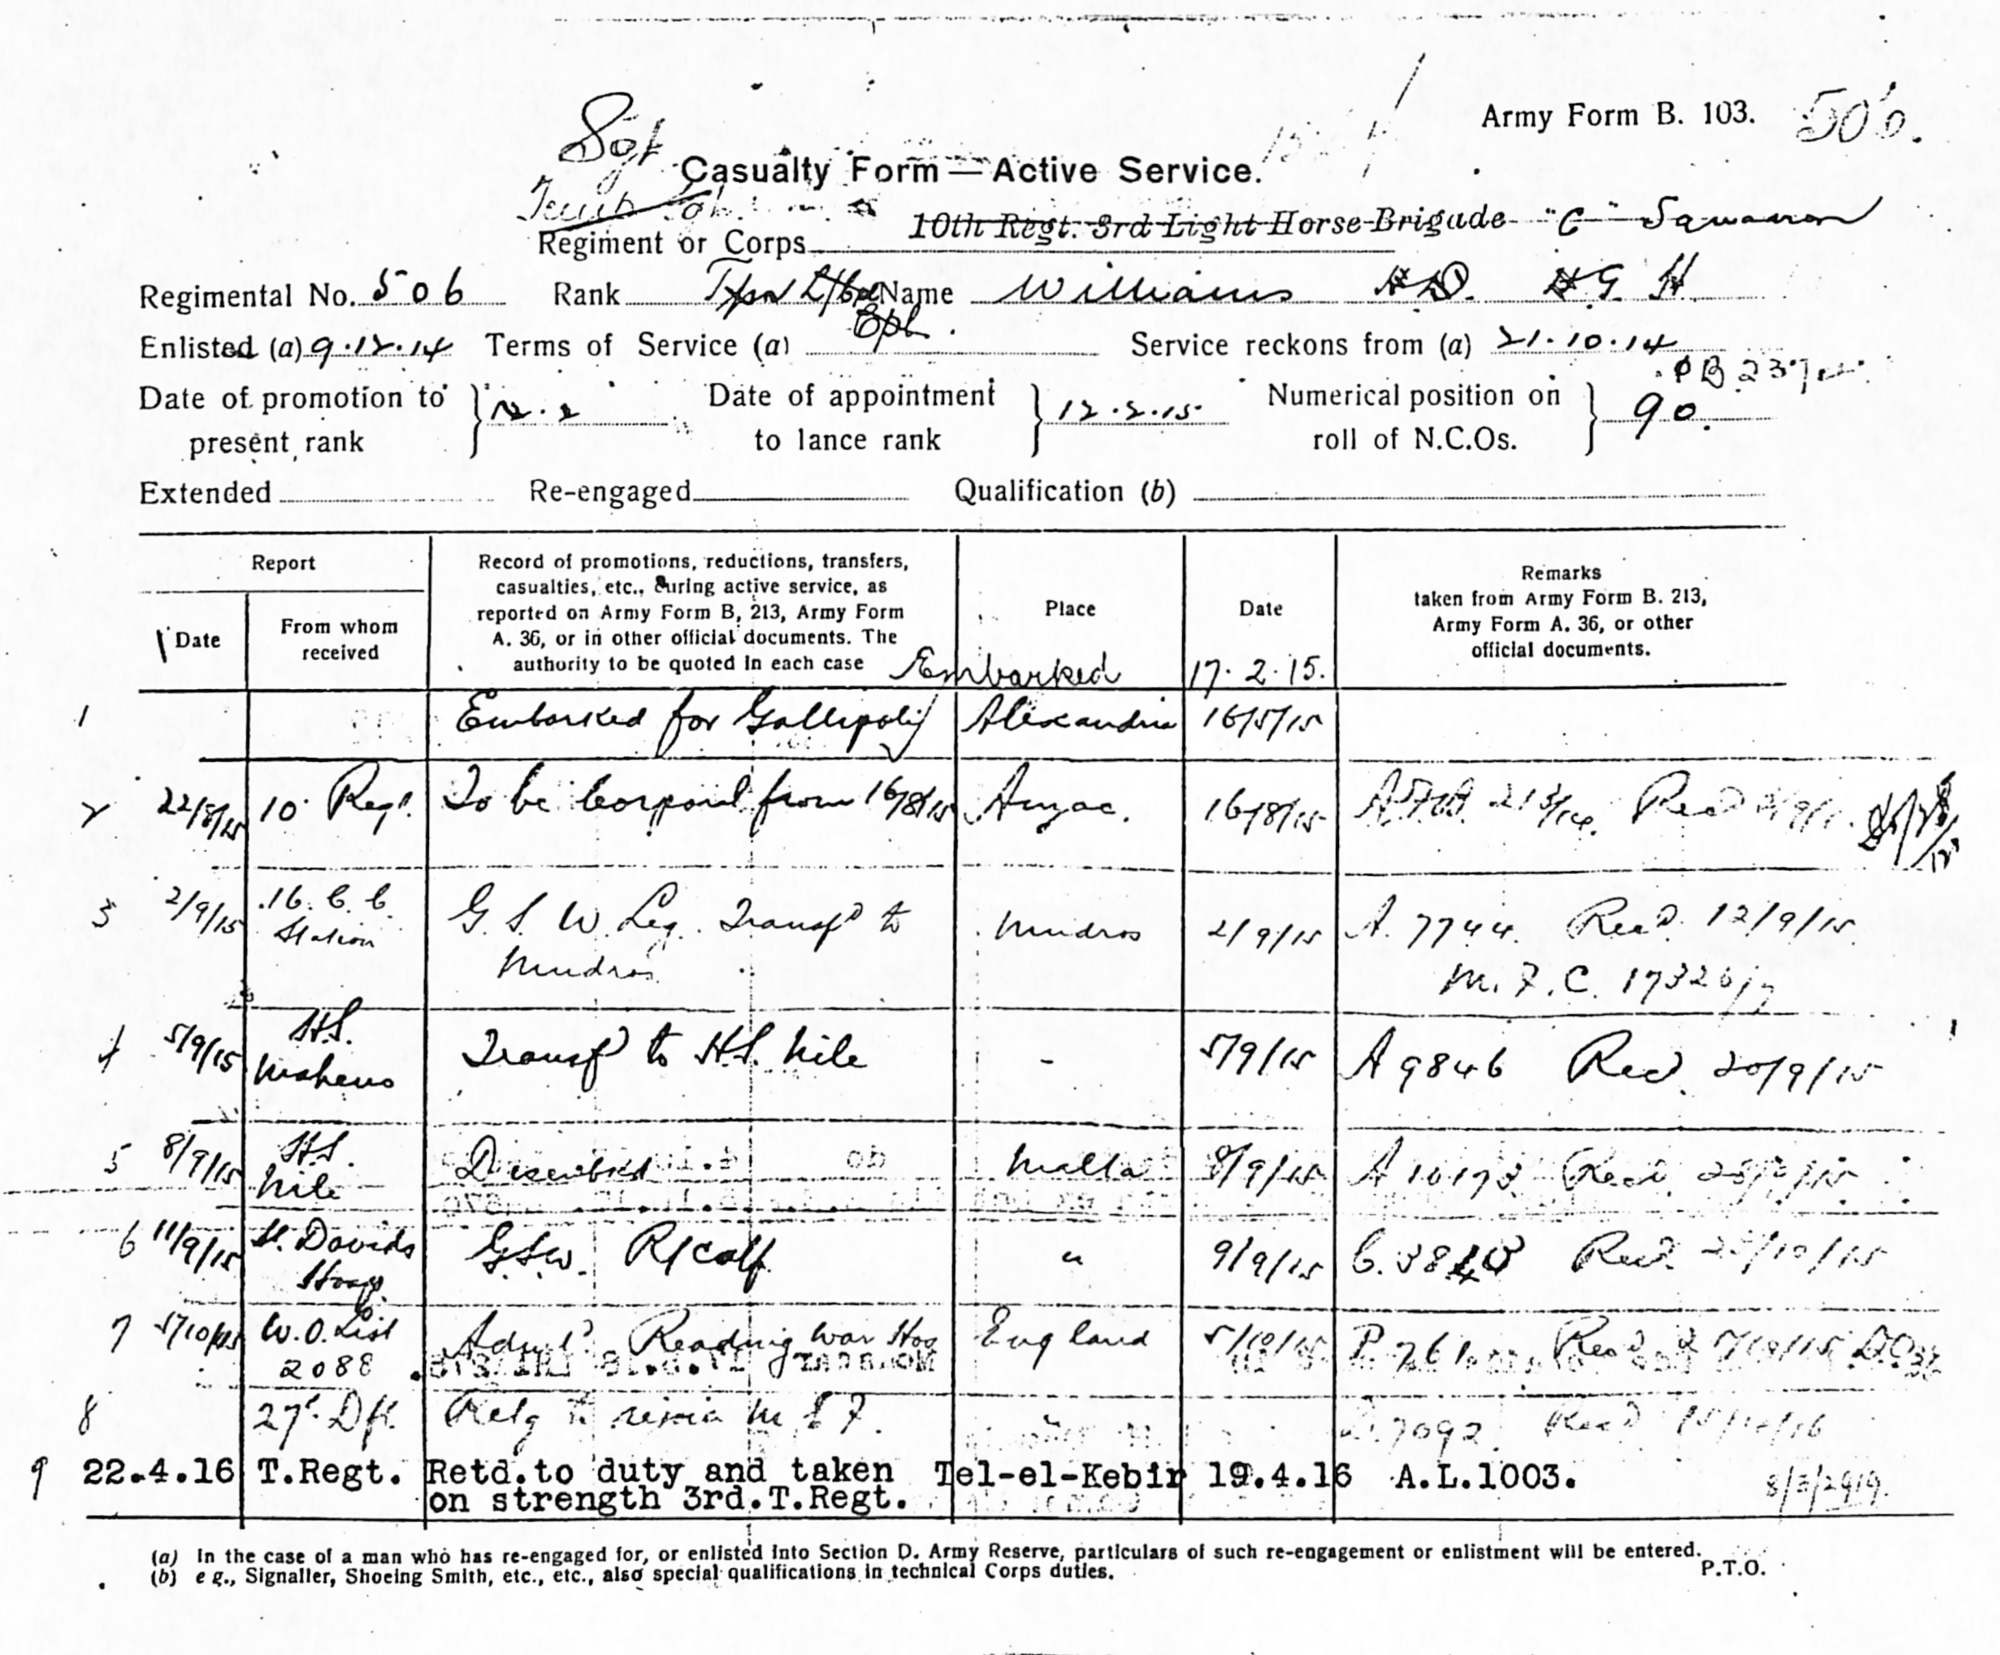 Army Form B. 103. 506.
Sgt
Casualty Form — Active Service.
10th Regt. 3rd Light Horse Brigade "C" Squadron
Regiment or Corps
Regimental No. 506 Rank Name Williams H G H
Cpl.
Enlisted (a) 9.12.14 Terms of Service (a) Service reckons from (a) 21.10.14
Date of promotion to present rank } Date of appointment to lance rank } 12.2.15 Numerical position on roll of N.C.Os. } 90.
Extended Re-engaged Qualification (b)
Report
Date
From whom received
Record of promotions, reductions, transfers,
casualties, etc., during active service, as
reported on Army Form B, 213, Army Form
A. 36, or in other official documents. The
authority to be quoted in each case
Place
Date
Remarks
taken from Army Form B. 213,
Army Form A. 36, or other
official documents.
Embarked 17.2.15.
1 Embarked for Gallipoli Alexandria 16/5/15
2 22/8/15 10 Regt. To be Corporal from 16/8/15 Anzac. 16/8/15
3 2/9/15 16. C. C. Station G. S. W. Leg. Transfd to Mudros Mudros 2/9/15 A. 7744. Recd. 12/9/15
M.F.C. 17326/7
4 5/9/15 H.S. Maheno Transfd to H.S. Nile - 5/9/15 A 9846 Recd. 20/9/15
5 8/9/15 H.S. Nile Disembkd Malta 8/9/15 A 10173 Recd.
6 11/9/15 St. Davids Hosp. G.S.W. R/calf " 9/9/15 Recd.
7 5/10/15 W.O. List 2088 Admtd Reading War Hos England 5/10/15
8 27 Dft.
9 22.4.16 T.Regt. Retd.to duty and taken Tel-el-Kebir 19.4.16 A.L.1003.
on strength 3rd.T.Regt.
(a) In the case of a man who has re-engaged for, or enlisted into Section D. Army Reserve, particulars of such re-engagement or enlistment will be entered.
(b) e g., Signaller, Shoeing Smith, etc., etc., also special qualifications in technical Corps duties.
P.T.O.